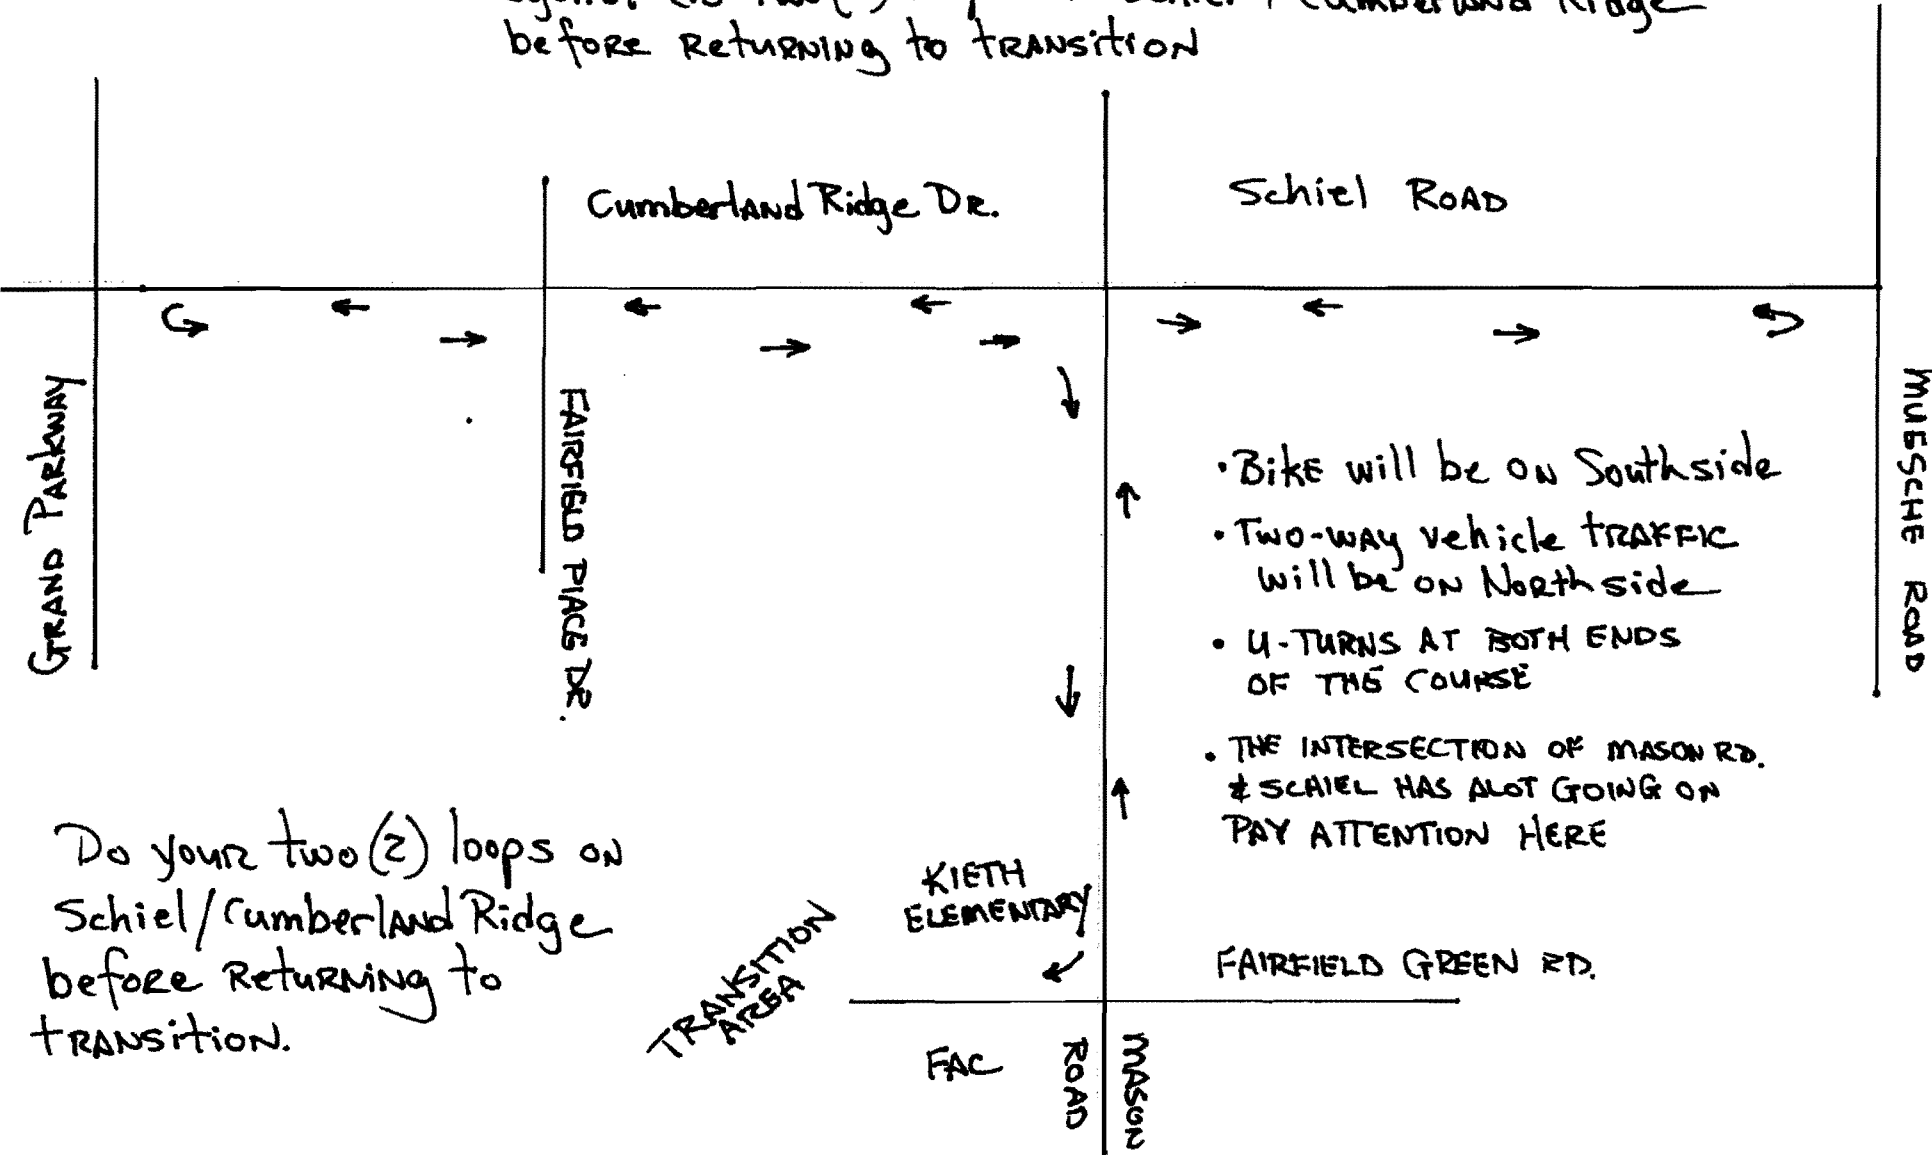 Cumberland Ridge
before Returning to transition
Cumberland Ridge Dr.
Schiel Road
GRAND PARKWAY
FAIRFIELD PLACE DR.
MUESCHE ROAD
• Bike will be on Southside
• Two-way vehicle traffic
will be on Northside
• U-TURNS AT BOTH ENDS
OF THE COURSE
• THE INTERSECTION OF MASON RD.
& SCHIEL HAS ALOT GOING ON
PAY ATTENTION HERE
Do your two (2) loops on
Schiel/Cumberland Ridge
before Returning to
transition.
KIETH
ELEMENTARY
TRANSITION
AREA
FAIRFIELD GREEN RD.
FAC
MASON
ROAD